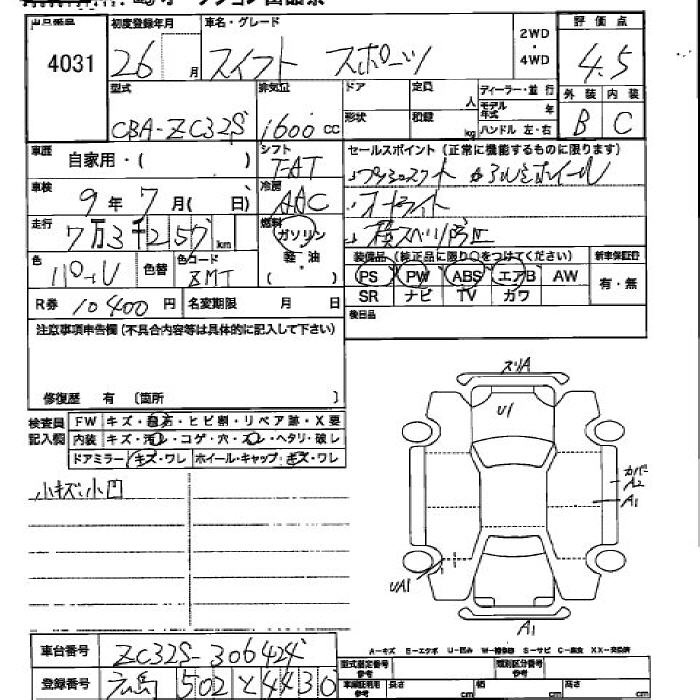 出品番号 初度登録年月 車名・グレード 2WD・4WD 評価点
4031 26 月 スイフト スポーツ 4.5
外装 内装
B C
型式 排気量 ドア 定員 人 ディーラー・並行
モデル年式 年
CBA-ZC32S 1600 cc 形状 積載 kg ハンドル 左・右
車歴 自家用・( ) シフト セールスポイント(正常に機能するものに限ります)
7AT
車検 9 年 7 月( 日) 冷房 AAC
オートライト
走行 7万3千257 km 燃料 ガソリン
横スベリ防止
軽・油
装備品(純正品に限り○をつけてください) 新車保証書
色 パール 色替 色コード ZMT ( ) PS PW ABS エアB AW 有・無
SR ナビ TV ガワ
R券 10400 円 名変期限 月 日 後日品
注意事項申告欄(不具合内容等は具体的に記入して下さい)
修復歴 有 〔箇所
検査員記入欄 FW キズ・飛石・ヒビ割・リペア跡・X要
内装 キズ・汚レ・コゲ・穴・スレ・ヘタリ・破レ
ドアミラー キズ・ワレ ホイール・キャップ キズ・ワレ
小キズ、小凹
スリA
U1
カバー
A2
A1
UA1
A1
A-キズ E-エクボ U-凹み W-補修跡 S-サビ C-腐食 XX-交換済
車台番号 ZC32S-306424
登録番号 広島 502 と 4430
型式指定番号 参考 類別区分番号 参考
車検証利用 参考 長さ cm 幅 cm 高さ cm